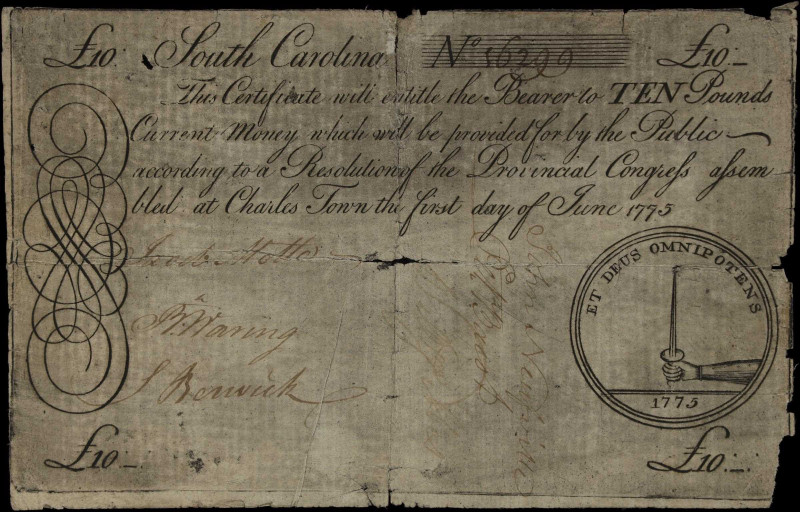 £10: South Carolina No 16299 £10:_
This Certificate will entitle the Bearer to TEN Pounds
Current Money which will be provided for by the Public
according to a Resolution of the Provincial Congress assem
bled at Charles Town the first day of June 1775
Jacob Motte
Bn. Waring
S Berwick
ET DEUS OMNIPOTENS
1775
£10_. £10_.